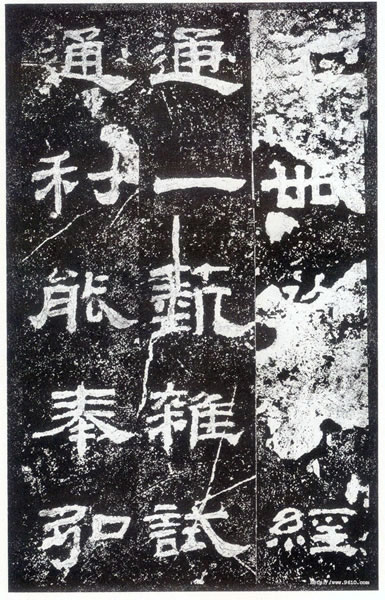 卌經
通一藝雜試
通利能奉弘
http://www.9610.com